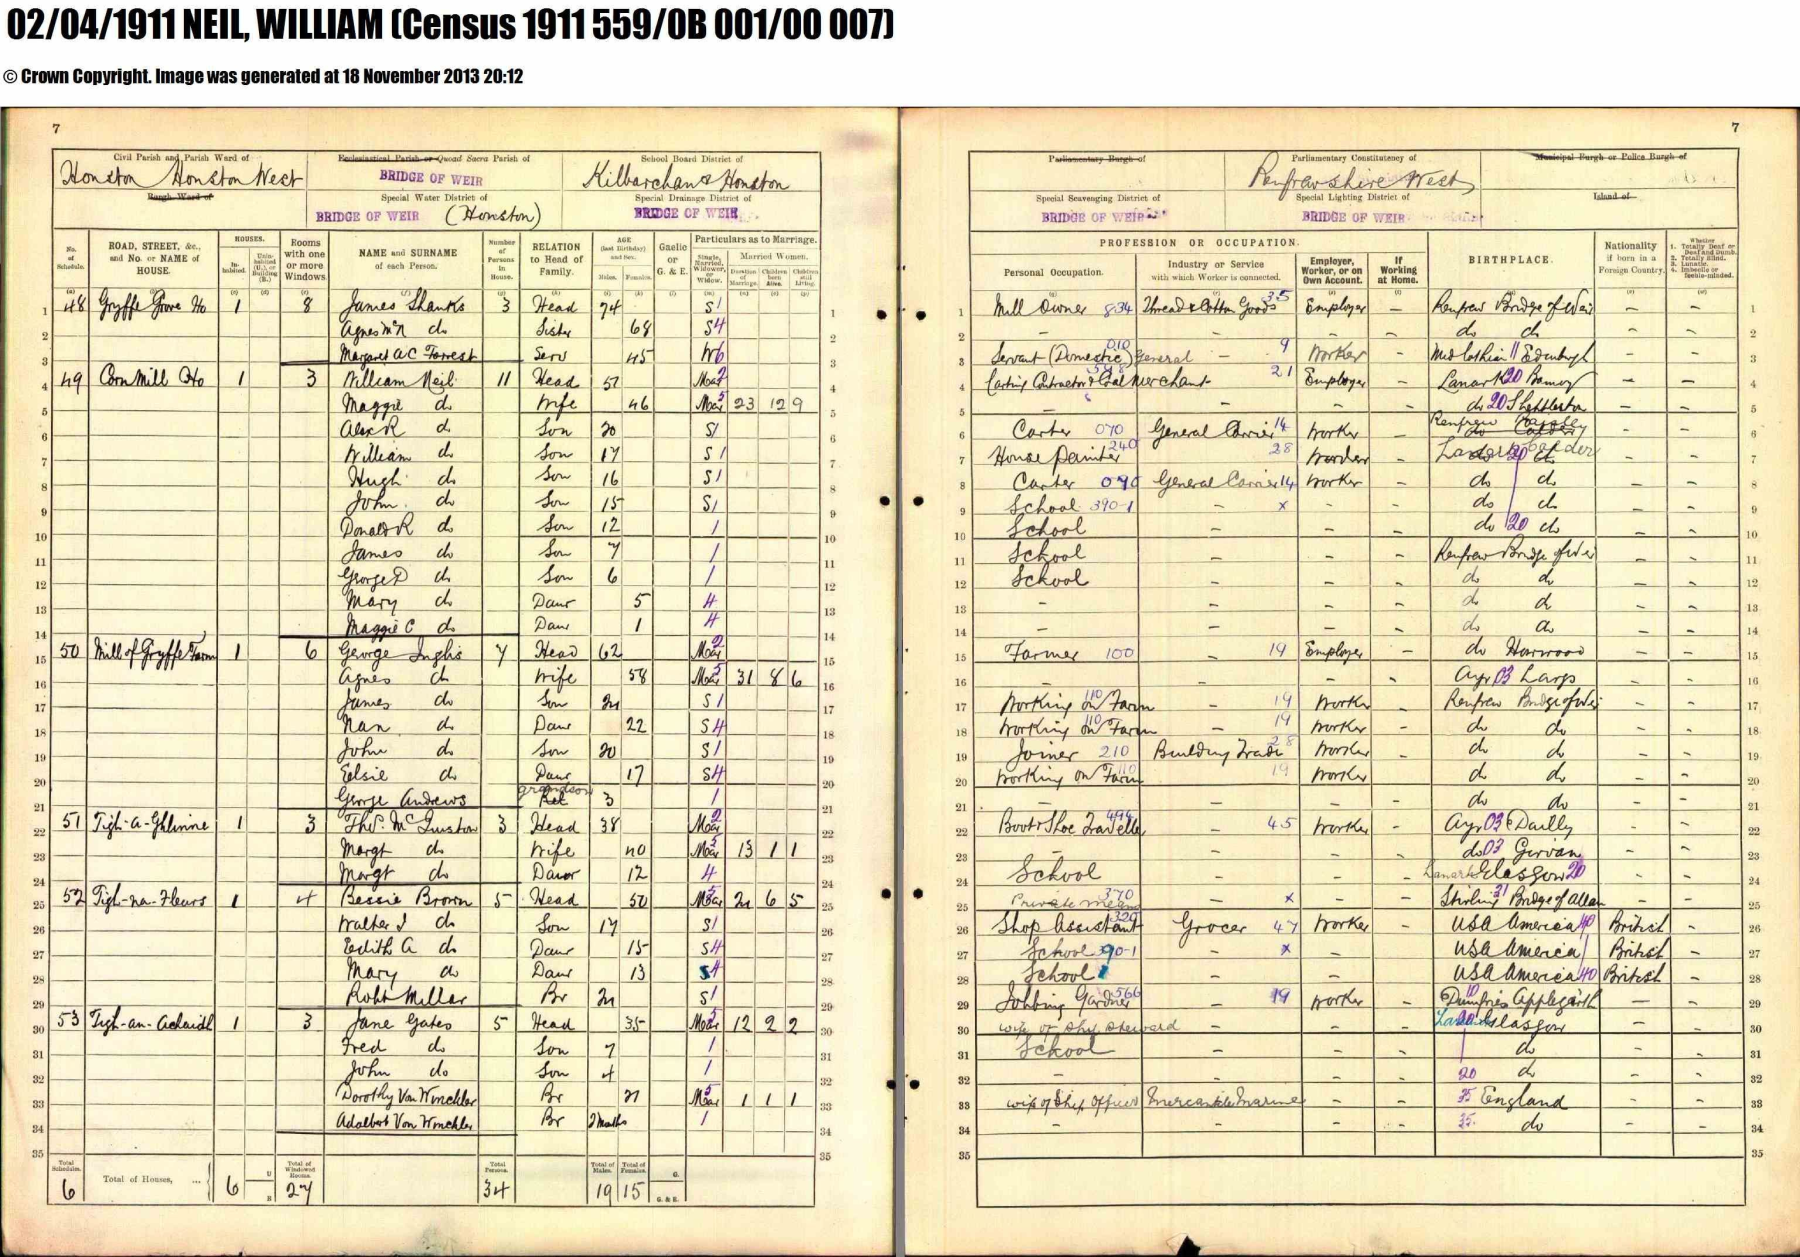 02/04/1911 NEIL, WILLIAM (Census 1911 559/0B 001/00 007)
© Crown Copyright. Image was generated at 18 November 2013 20:12
7
Civil Parish and Parish Ward of
Houston Houston West
Burgh Ward of
Ecclesiastical Parish or Quoad Sacra Parish of
BRIDGE OF WEIR
School Board District of
Kilbarchan & Houston
Special Water District of
BRIDGE OF WEIR (Houston)
Special Drainage District of
BRIDGE OF WEIR
No. of Schedule. ROAD, STREET, &c., and No. or NAME of HOUSE. HOUSES. Inhabited. Rooms with one or more Windows. NAME and SURNAME of each Person. Number of Persons in House. RELATION to Head of Family. AGE (last Birthday) and Sex. Males. Females. Gaelic or G. & E. Particulars as to Marriage. Single, Married, Widower, or Widow. Married Women. Duration of Marriage. Children born Alive. Children still Living.
1 48 Gryffe Grove Ho 1 8 James Shanks 3 Head 74 S 1
2 Agnes McN do Sister 68 S 4
3 Margaret A C Forrest Serv 45 W 6
4 49 Corn Mill Ho 1 3 William Neil 11 Head 51 Mar 2
5 Maggie do Wife 46 Mar 5 23 12 9
6 Alex R do Son 20 S 1
7 William do Son 17 S 1
8 Hugh do Son 16 S 1
9 John do Son 15 S 1
10 Donald R do Son 12 1
11 James do Son 7 1
12 George D do Son 6 1
13 Mary do Daur 5 4
14 Maggie C do Daur 1 4
15 50 Mill of Gryffe Farm 1 6 George Inglis 7 Head 62 Mar 2
16 Agnes do Wife 58 Mar 5 31 8 6
17 James do Son S 1
18 Nan do Daur 22 S 4
19 John do Son 20 S 1
20 Elsie do Daur 17 S 4
21 George Andrews grandson Rel 3 1
22 51 1 3 Thos. Head 38 Mar 2
23 Margt do Wife 40 Mar 5 13 1 1
24 Margt do Daur 12 4
25 52 1 4 Bessie Brown 5 Head 50 Mar 5 6 5
26 Walter J do Son 17 S 1
27 Edith A do Daur 15 S 4
28 Mary do Daur 13 S 4
29 Robt Millar Br S 1
30 53 1 3 Jane Gates 5 Head 35 Mar 5 12 2 2
31 Fred do Son 7 1
32 John do Son 4 1
33 Dorothy Von Winckler Br 21 Mar 5 1 1 1
34 Adalbert Von Winckler Br 2 Months 1
35
Total Schedules. 6 Total of Houses, ... 6 U B Total of Windowed Rooms. 27 Total Persons. 34 Total of Males. 19 Total of Females. 15 G. G. & E.
7
Parliamentary Burgh of
Parliamentary Constituency of
Renfrewshire West
Municipal Burgh or Police Burgh of
Special Scavenging District of
BRIDGE OF WEIR
Special Lighting District of
BRIDGE OF WEIR
Island of
PROFESSION OR OCCUPATION. Personal Occupation. Industry or Service with which Worker is connected. Employer, Worker, or on Own Account. If Working at Home. BIRTHPLACE. Nationality if born in a Foreign Country. Whether 1. Totally Deaf or Deaf and Dumb. 2. Totally Blind. 3. Lunatic. 4. Imbecile or feeble-minded.
1 Mill Owner 834 Thread & Cotton Goods 35 Employer – Renfrew Bridge of Weir
2 – – – do do
3 Servant (Domestic) General – 9 Worker – Midlothian 11 Edinburgh
4 Carting Contractor & Coal Merchant 21 Employer – Lanark 20
5 – do 20 Shettleston
6 Carter 070 General Carrier 14 Worker – Renfrew
7 House Painter 240 28 Worker
8 Carter 070 General Carrier 14 Worker – do do
9 School 390-1 – x – do do
10 School – – do 20 do
11 School – – – Renfrew Bridge of Weir
12 School – – – do do
13 – – – do do
14 – – – do do
15 Farmer 100 – 19 Employer – do
16 – – – Ayr 03 Largs
17 Working on Farm 110 – 19 Worker – Renfrew Bridge of Weir
18 Working on Farm 110 – 19 Worker – do do
19 Joiner 210 Building Trade 28 Worker – do do
20 Working on Farm 110 19 Worker – do do
21 – – – do do
22 Boot & Shoe Traveller – 45 Worker – Ayr 03 Dailly
23 – – – do 03 Girvan
24 School – – – Lanark Glasgow 20
25 Private means 370 x – – Stirling 31 Bridge of Allan
26 Shop Assistant 320 Grocer 47 Worker – USA America 40 British –
27 School – x – USA America British –
28 School – – USA America 40 British –
29 Jobbing Gardner 566 19 Worker – Dumfries 10 Applegarth
30 wife of Ship Steward – – – Glasgow
31 School – – – do
32 – – – 20 do
33 wife of Ship Officer Mercantile Marine – – 35 England
34 – – – 35 do
35